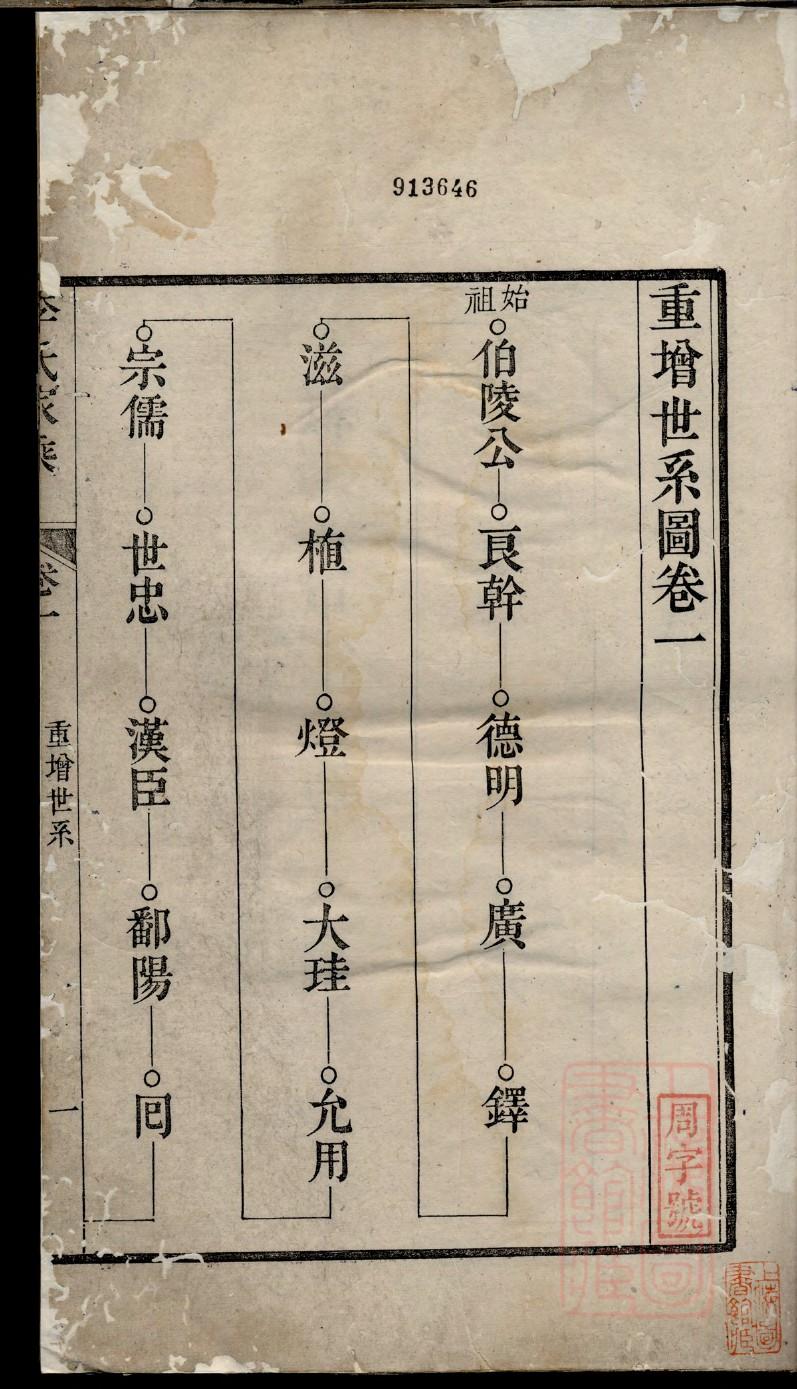 913646
重增世系圖卷一
周字號
始祖
伯陵公
良幹
德明
廣
鐸
滋
植
燈
大珪
允用
宗儒
世忠
漢臣
鄱陽
囘
氏家乘
卷一
重增世系
一